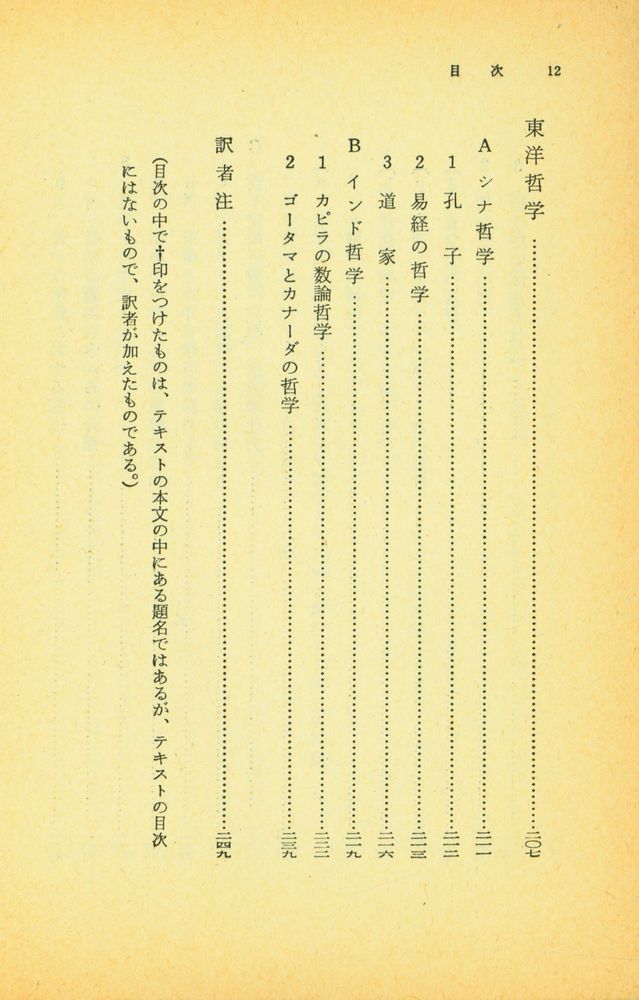 目次 12
東洋哲学……二〇七
A シナ哲学……二一一
1 孔子……二一二
2 易経の哲学……二一三
3 道家……二一六
B インド哲学……二一九
1 カピラの数論哲学……二二二
2 ゴータマとカナーダの哲学……二三九
訳者注……二四九
(目次の中で†印をつけたものは、テキストの本文の中にある題名ではあるが、テキストの目次
にはないもので、訳者が加えたものである。)